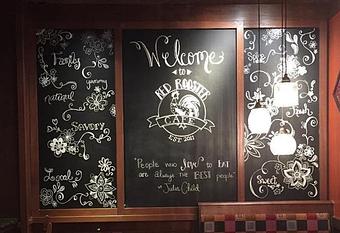 Tasty
yummy
natural
Daily
SAVORY
Local
Welcome
to
RED ROOSTER
CAFE
EST 2021
"People who love to eat
are always the BEST people"
- Julia Child
Fresh
Sweet